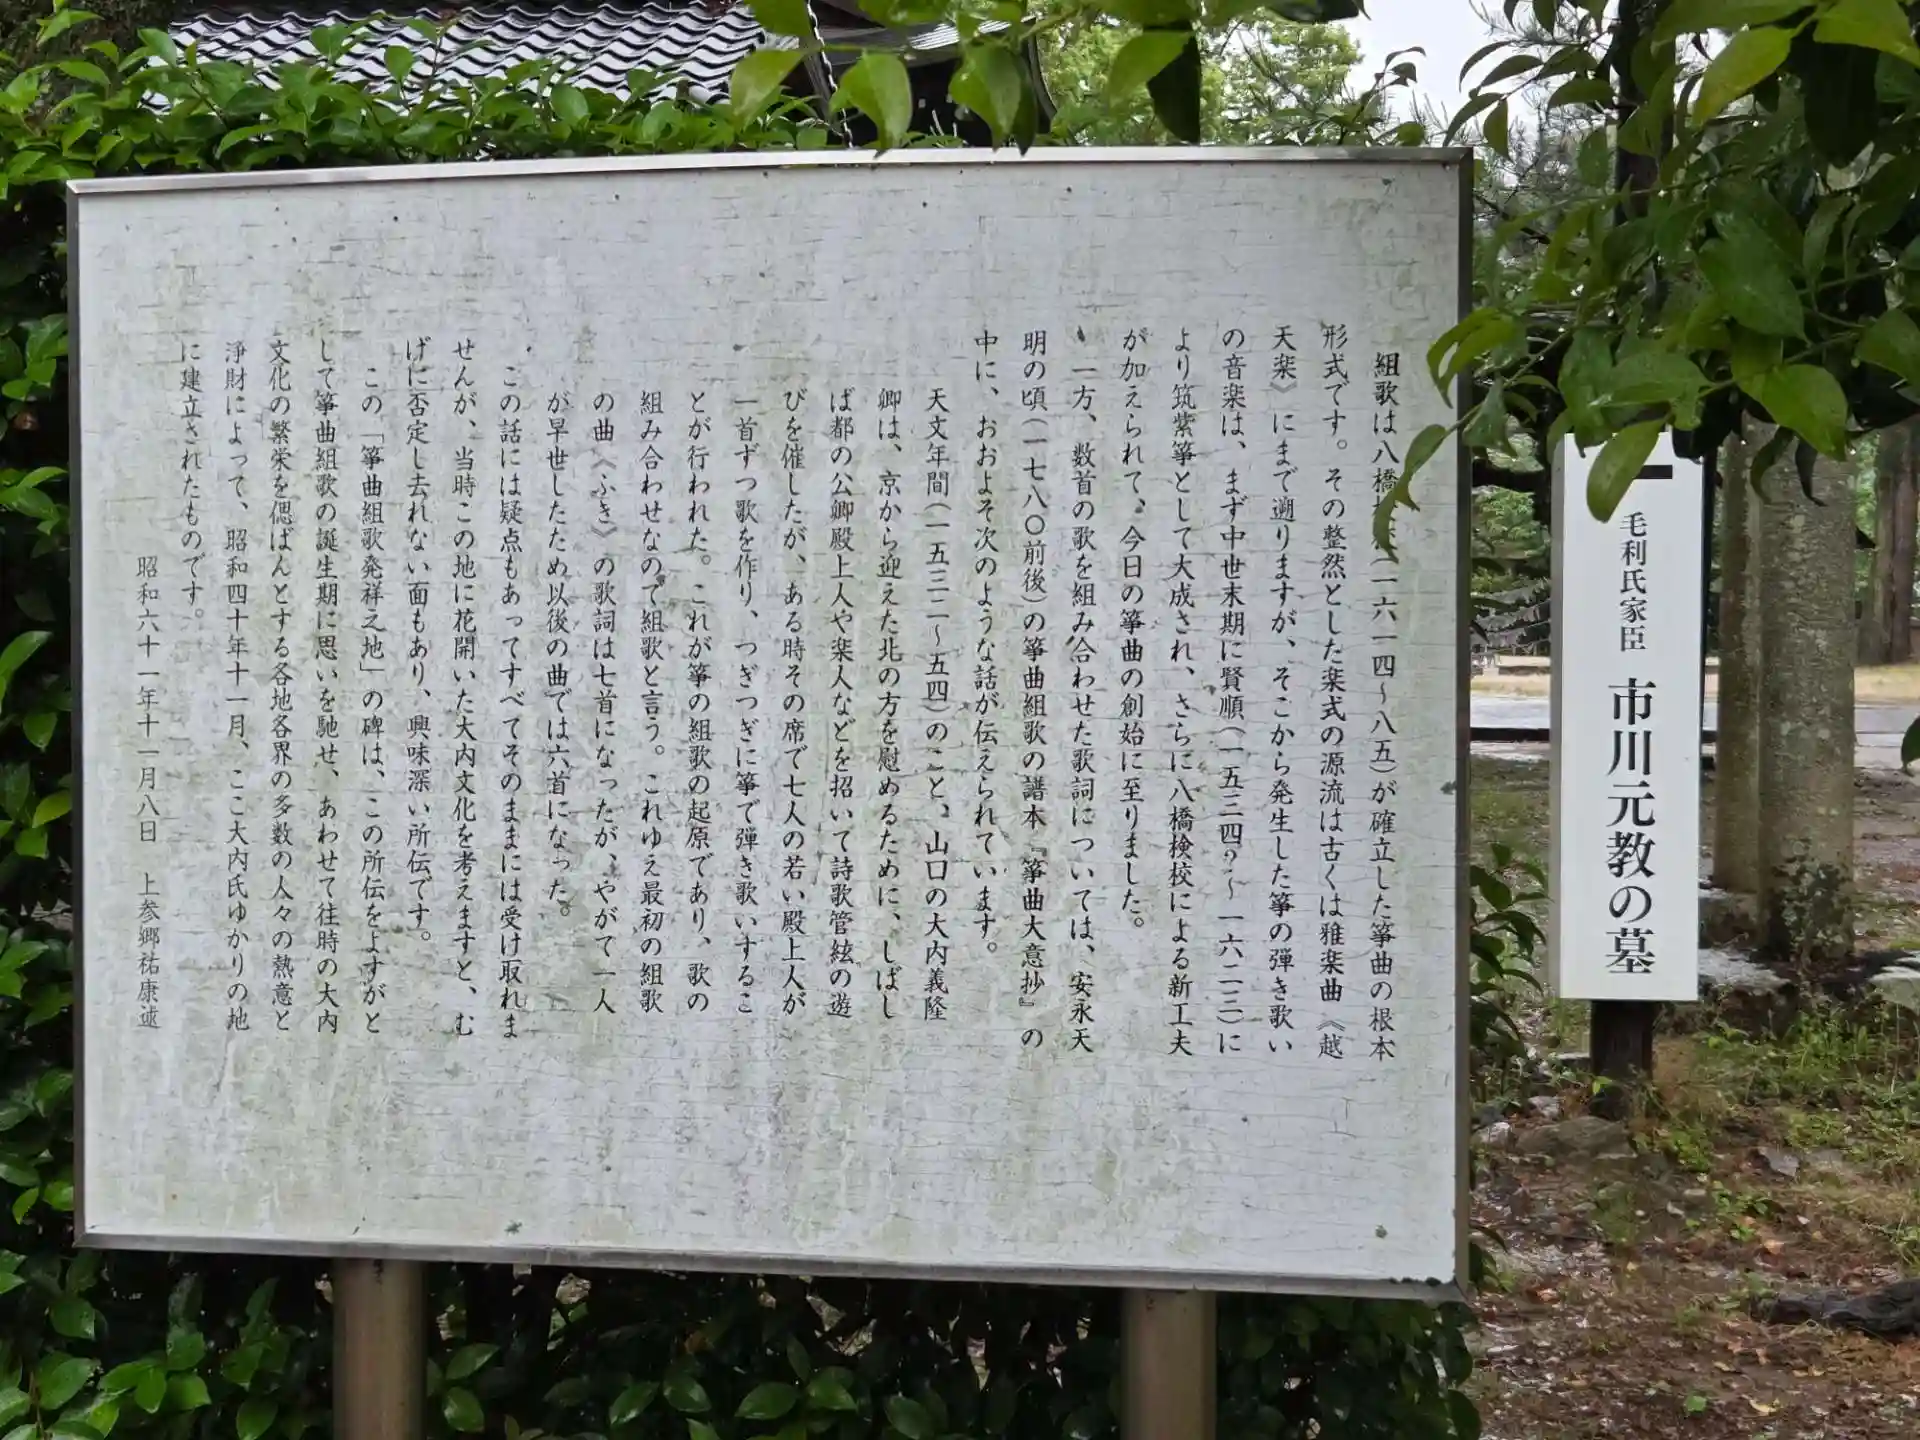 組歌は八橋(一六一四〜八五)が確立した箏曲の根本
形式です。その整然とした楽式の源流は古くは雅楽曲《越
天楽》にまで遡りますが、そこから発生した箏の弾き歌い
の音楽は、まず中世末期に賢順(一五三四?〜一六二三)に
より筑紫箏として大成され、さらに八橋検校による新工夫
が加えられて、今日の箏曲の創始に至りました。
一方、数首の歌を組み合わせた歌詞については、安永天
明の頃(一七八〇前後)の箏曲組歌の譜本『箏曲大意抄』の
中に、おおよそ次のような話が伝えられています。
天文年間(一五三二〜五四)のこと、山口の大内義隆
卿は、京から迎えた北の方を慰めるために、しばし
ば都の公卿殿上人や楽人などを招いて詩歌管絃の遊
びを催したが、ある時その席で七人の若い殿上人が
一首ずつ歌を作り、つぎつぎに箏で弾き歌いするこ
とが行われた。これが箏の組歌の起原であり、歌の
組み合わせなので組歌と言う。これゆえ最初の組歌
の曲《ふき》の歌詞は七首になったが、やがて一人
が早世したため以後の曲では六首になった。
この話には疑点もあってすべてそのままには受け取れま
せんが、当時この地に花開いた大内文化を考えますと、む
げに否定し去れない面もあり、興味深い所伝です。
この「箏曲組歌発祥之地」の碑は、この所伝をよすがと
して箏曲組歌の誕生期に思いを馳せ、あわせて往時の大内
文化の繁栄を偲ばんとする各地各界の多数の人々の熱意と
浄財によって、昭和四十年十一月、ここ大内氏ゆかりの地
に建立されたものです。
昭和六十一年十一月八日 上参郷祐康述
毛利氏家臣 市川元教の墓